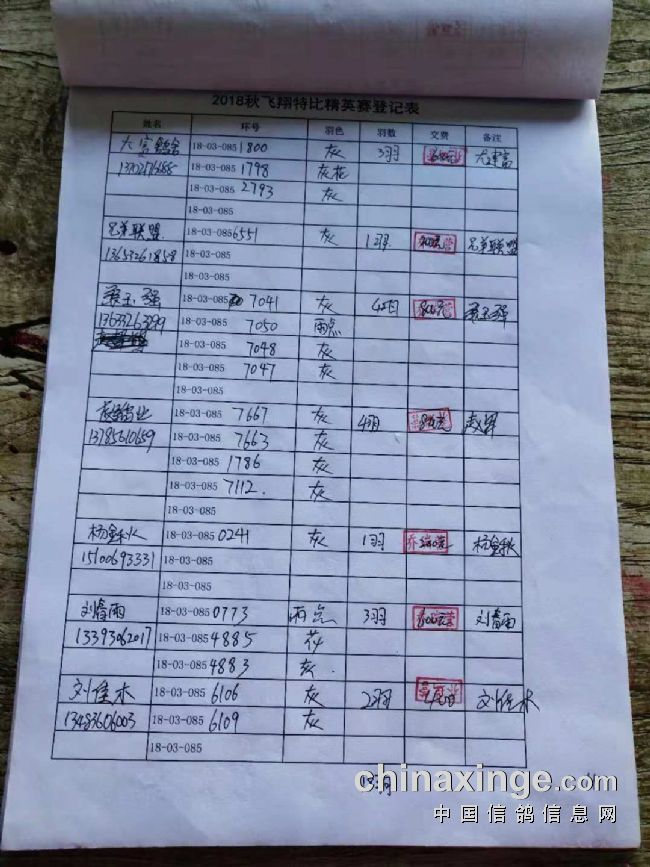 2018秋飞翔特比精英赛登记表
姓名 环号 羽色 羽数 交费 备注
大富鸽舍 18-03-085 1800 灰 3羽
18-03-085 1798 灰花
18-03-085 2793 灰
18-03-085
兄弟联盟 18-03-085 6551 灰 1羽 兄弟联盟
18-03-085
18-03-085
18-03-085 7041 灰
13633263299 18-03-085 7050 雨点
18-03-085 7048 灰
18-03-085 7047 灰
18-03-085
18-03-085 7667 灰 4羽 赵军
13785610659 18-03-085 7663 灰
18-03-085 1786 灰
18-03-085 7112 灰
18-03-085 0241 灰 1羽
15100693331 18-03-085
18-03-085
刘春雨 18-03-085 0773 雨点 3羽 刘春雨
13393062017 18-03-085 4885 花
18-03-085 4883 灰
刘佳木 18-03-085 6106 灰 2羽 刘佳木
13483606003 18-03-085 6109 灰
18-03-085
18羽
chinaxinge.com
中国信鸽信息网